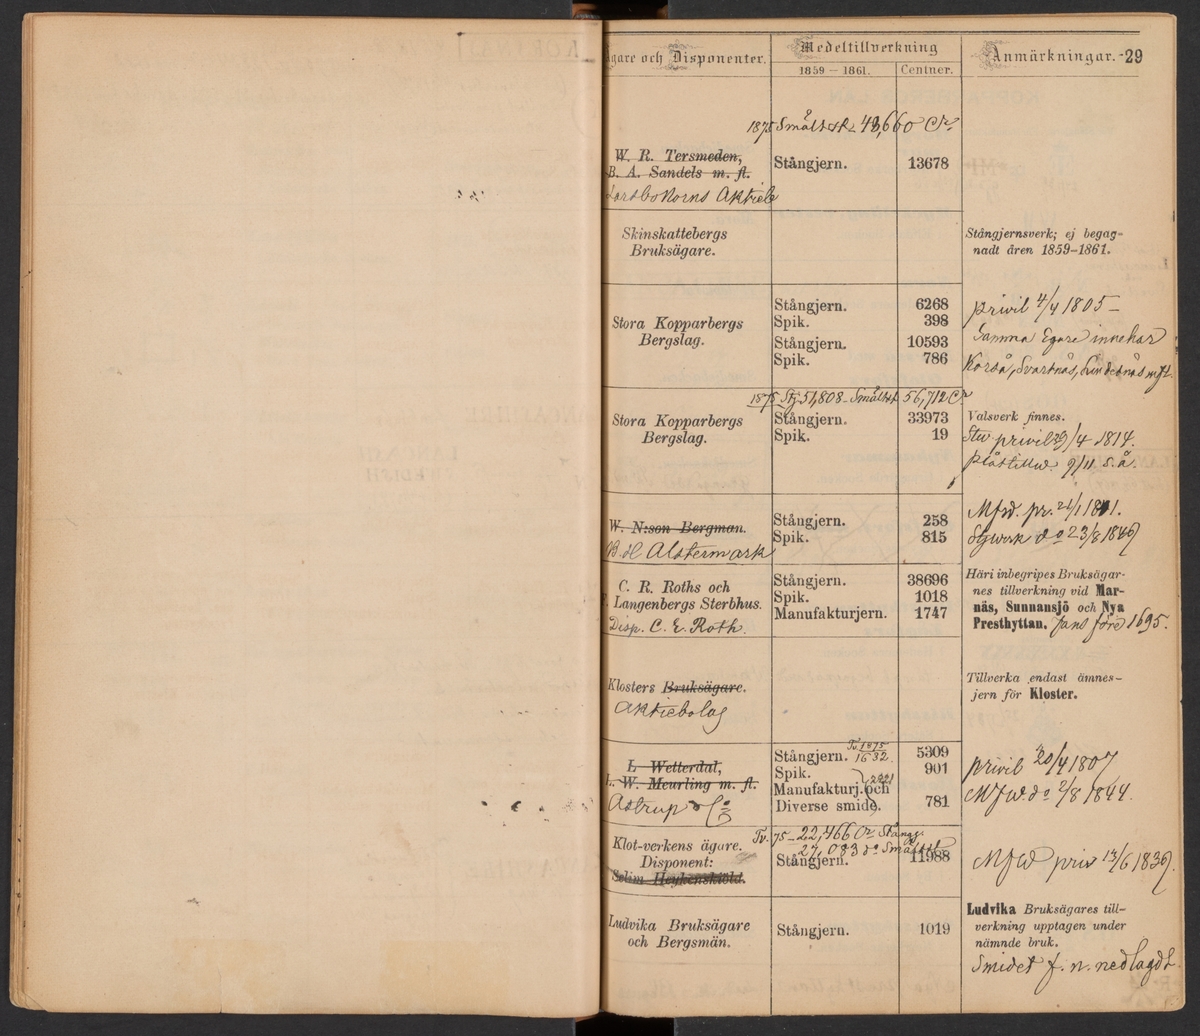 Ägare och Disponenter. Medeltillverkning Anmärkningar. -29
1859 — 1861. Centner.
1875 Småltst. 48,660 Ctr
W. R. Tersmeden,
B. A. Sandels m. fl. Stångjern. 13678
Aktieb
Skinskattebergs
Bruksägare.
Stångjernsverk; ej begag-
nadt åren 1859–1861.
Stora Kopparbergs
Bergslag.
Stångjern. 6268
Spik. 398
Stångjern. 10593
Spik. 786
privil 4/4 1805 –
Samma Egare innehar
Korså, Svartnäs, Lindesnäs m.fl.
1875 Stj 51,808 – Småltst 56,712 Ctr
Stora Kopparbergs
Bergslag.
Stångjern. 33973
Spik. 19
Valsverk finnes.
privil 29/4 1814.
9/11 s. å.
W. N:son Bergman.
Alstermark
Stångjern. 258
Spik. 815
Mfw. pr. 21/1
do 23/8 1849
C. R. Roths och
F. Langenbergs Sterbhus.
Disp. C. E. Roth.
Stångjern. 38696
Spik. 1018
Manufakturjern. 1747
Häri inbegripes Bruksägar-
nes tillverkning vid Mar-
näs, Sunnansjö och Nya
Presthyttan. fans före 1695.
Klosters Bruksägare.
Aktiebolag
Tillverka endast ämnes-
jern för Kloster.
L. Wetterdal,
L. W. Meurling m. fl.
Astrup & Co
Stångjern. Tv. 1875 1632. 5309
Spik. 901
Manufakturj. och
Diverse smide. 781
privil 20/4 1807
Mfw do 2/8 1844.
Tv. 75 – 22,466 Ctr Stångj:
27,083 do Småltst
Klot-verkens ägare.
Disponent:
Selim Heykenskiöld.
Stångjern. 11988
Mfw priv 13/6 1839.
Ludvika Bruksägare
och Bergsmän.
Stångjern. 1019
Ludvika Bruksägares till-
verkning upptagen under
nämnde bruk.
Smidet f. n. nedlagdt.